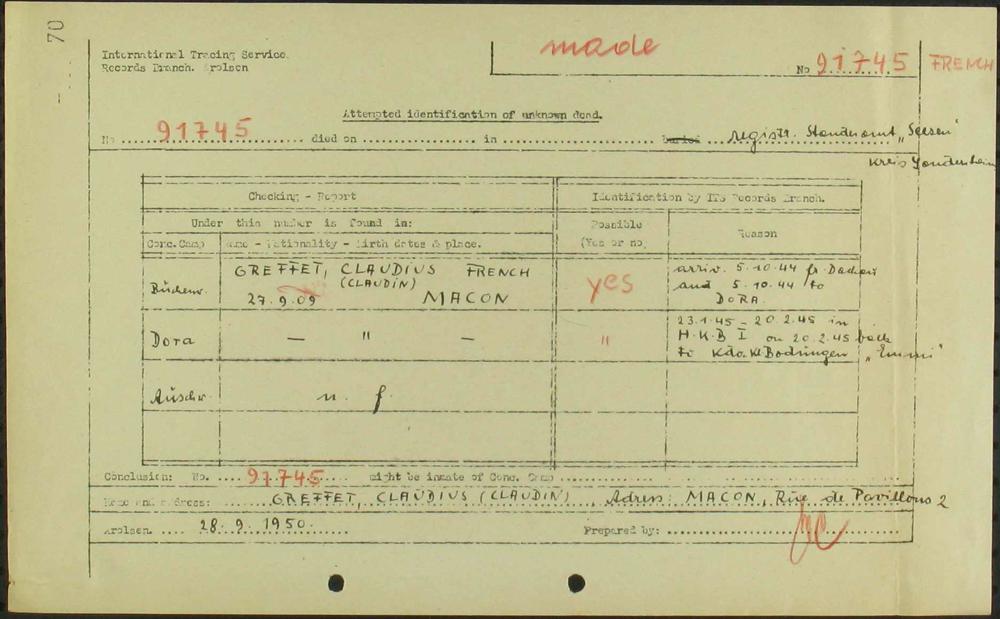 70
International Tracing Service.
Records Branch. Arolsen
made
No 91745 FRENCH
Attempted identification of unknown dead.
No 91745 died on in buried registr. Standesamt „Seesen"
Kreis
Checking - Report
Identification by ITS Records Branch.
Under this number is found in:
Possible
(Yes or no)
Reason
Conc.Camp
Name - Nationality - Birth dates & place.
Buchenw.
GREFFET, CLAUDIUS FRENCH
(CLAUDIN)
27.9.09 MACON
yes
arriv. 5.10.44 fr. Dachau
and 5.10.44 to
DORA.
Dora
— " —
"
23.1.45 - 20.2.45 in
H.K.B I on 20.2.45 back
to Kdo. Kl Bodungen „Emmi"
Auschw.
n. f.
Conclusion: No. 91745 might be inmate of Conc. Camp
Name and address: GREFFET, CLAUDIUS (CLAUDIN), Adress: MACON, Rue de Pavillons 2
Arolsen. 28.9.1950. Prepared by: